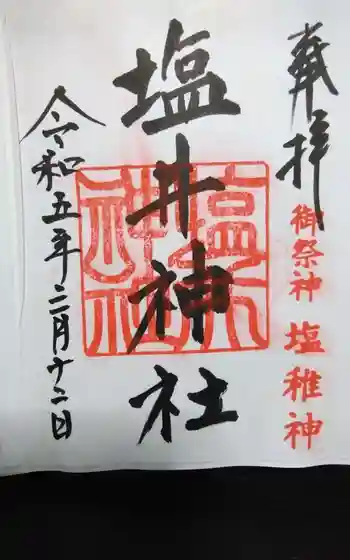 奉拝
御祭神 塩稚神
塩井神社
塩井神社
令和五年二月十二日